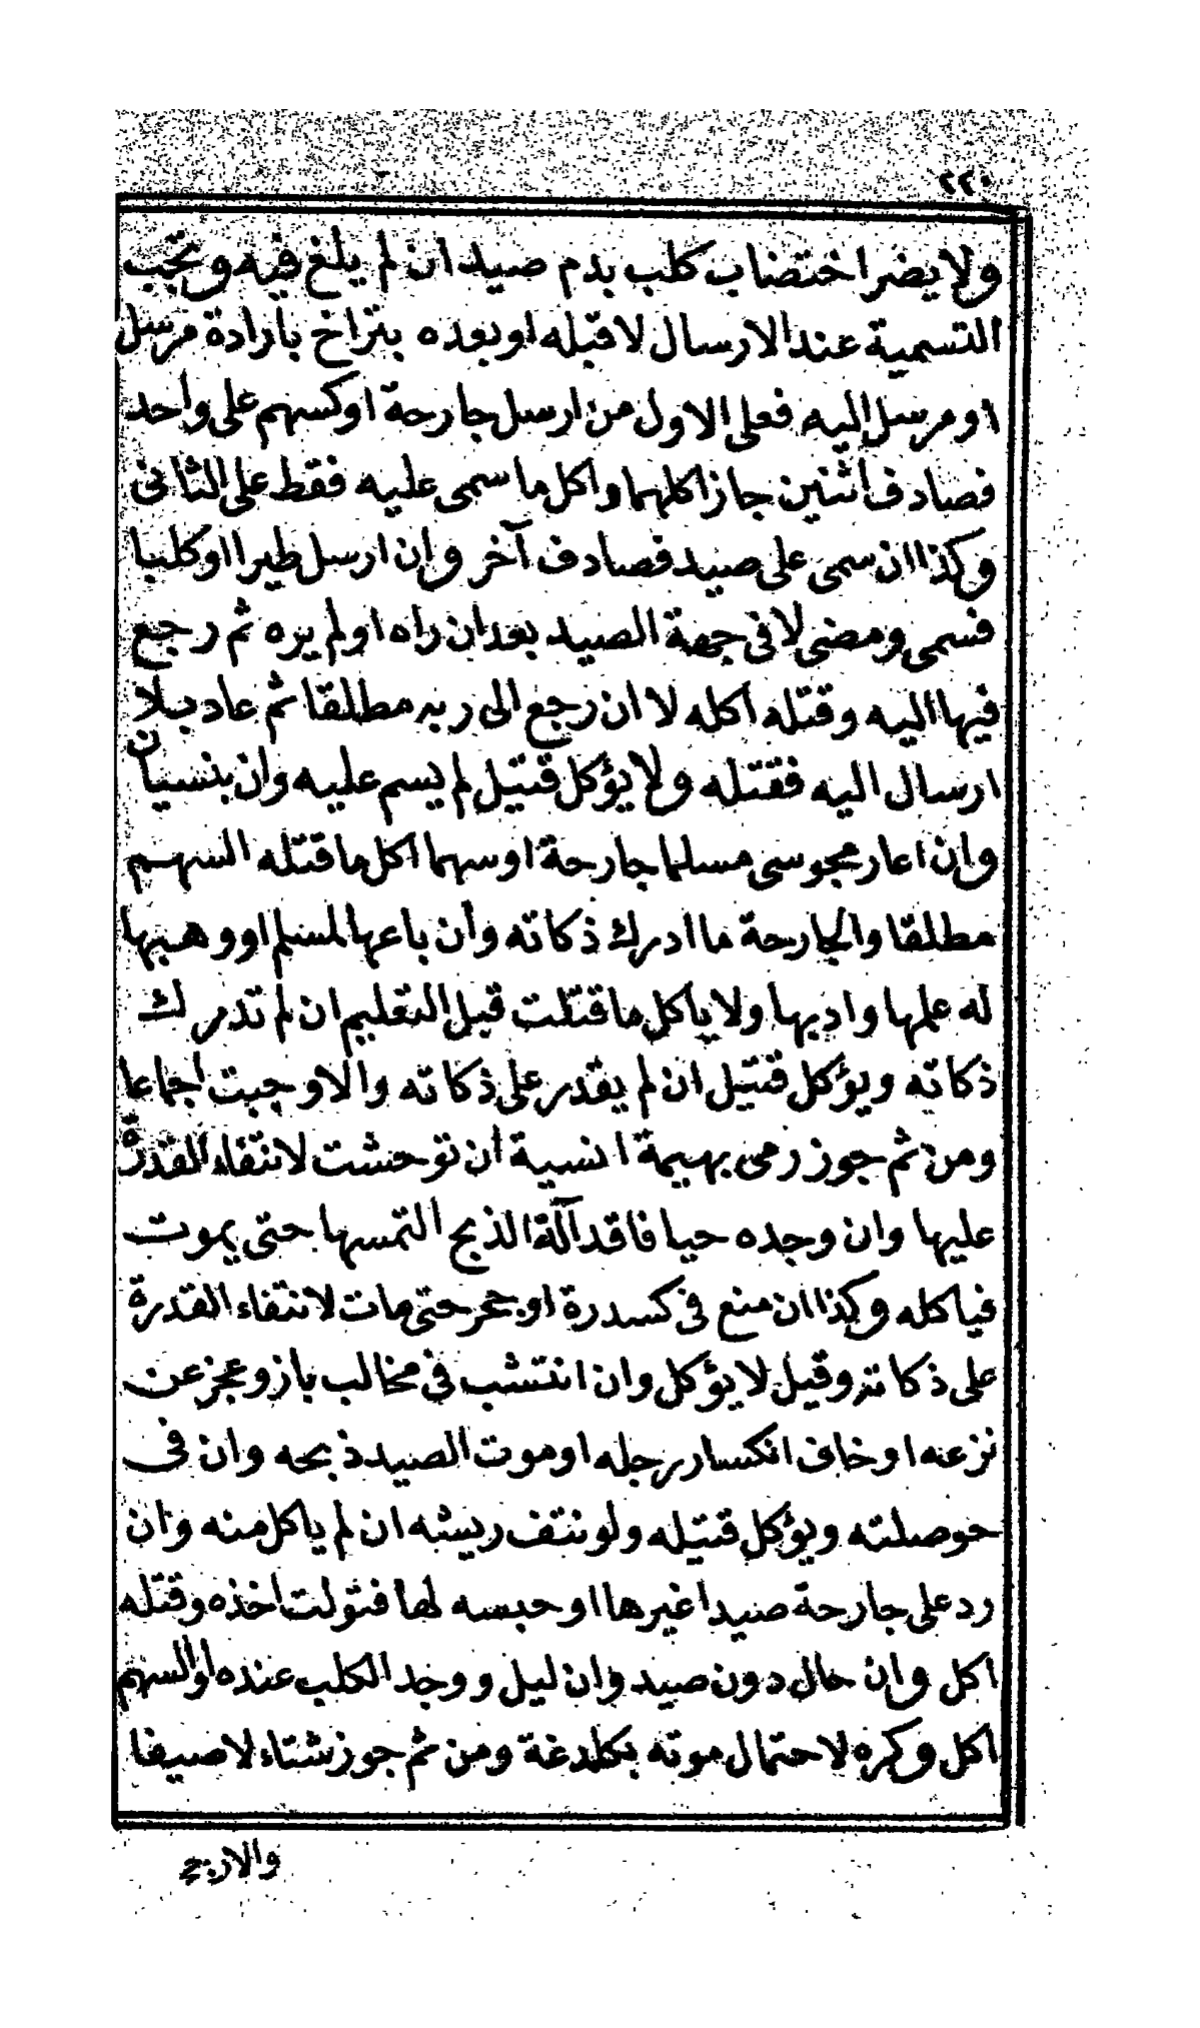 ٢٢٠
ولا يضر اختضاب كلب بدم صيد ان لم يلغ فيه وتجب
التسمية عند الارسال لا قبله او بعده بتراخ بارادة مرسل
او مرسل اليه فعلى الاول من ارسل جارحة او كسهم على واحد
فصادف اثنين جاز اكلهما واكل ما سمى عليه فقط على الثانى
وكذا ان سمى على صيد فصادف آخر وان ارسل طيرا او كلبا
فسمى ومضى لا فى جهة الصيد بعد ان راه او لم يره ثم رجع
فيها اليه وقتله اكله لا ان رجع الى ربه مطلقا ثم عاد بلا
ارسال اليه فقتله ولا يؤكل قتيل لم يسم عليه وان بنسيان
وان اعار مجوسى مسلما جارحة او سهما اكل ما قتله السهم
مطلقا والجارحة ما ادرك ذكاته وان باعها لمسلم او وهبها
له علمها وادبها ولا ياكل ما قتلت قبل التعليم ان لم تدرك
ذكاته ويؤكل قتيل ان لم يقدر على ذكاته والا وجبت اجماعا
ومن ثم جوز رمى بهيمة انسية ان توحشت لانتفاء القدرة
عليها وان وجده حيا فاقد آلة الذبح التمسها حتى يموت
فياكله وكذا ان منع فى كسدرة او جحر حتى مات لانتفاء القدرة
على ذكاته وقيل لا يؤكل وان انتشب فى مخالب باز وعجز عن
نزعه او خاف انكسار رجله او موت الصيد ذبحه وان فى
حوصلته ويؤكل قتيله ولو نتف ريشه ان لم ياكل منه وان
رد على جارحة صيدا غيرها او حبسه لها فتولت اخذه وقتله
اكل وان حال دون صيد وان ليل ووجد الكلب عنده او السهم
اكل وكره لاحتمال موته بكلدغة ومن ثم جوز شتاء لا صيفا
والارجح